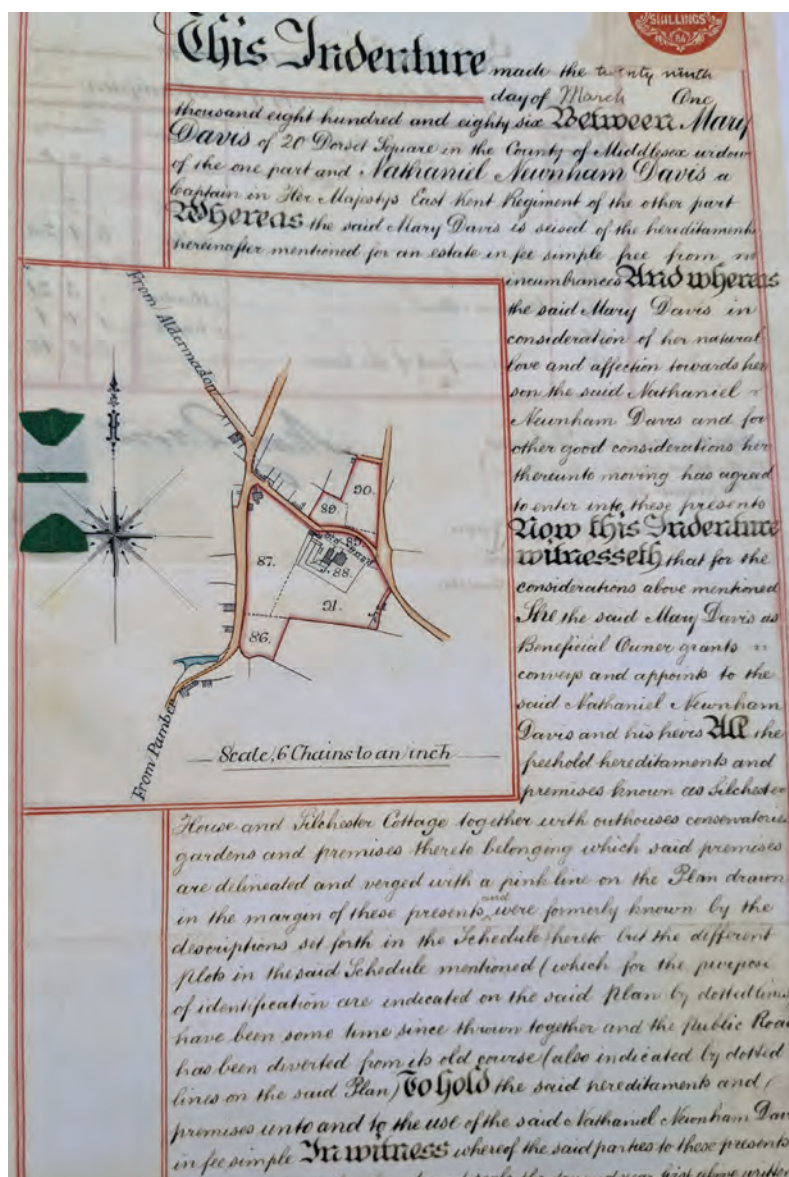 SHILLINGS
This Indenture made the twenty ninth
day of March One
thousand eight hundred and eighty six Between Mary
Davis of 20 Dorset Square in the County of Middlesex widow
of the one part and Nathaniel Newnham Davis a
Captain in Her Majestys East Kent Regiment of the other part
Whereas the said Mary Davis is seised of the hereditaments
hereinafter mentioned for an estate in fee simple free from
incumbrances And whereas
the said Mary Davis in
consideration of her natural
love and affection towards her
son the said Nathaniel
Newnham Davis and for
other good considerations her
thereunto moving has agreed
to enter into these presents
Now this Indenture
witnesseth that for the
considerations above mentioned
She the said Mary Davis as
Beneficial Owner grants
conveys and appoints to the
said Nathaniel Newnham
Davis and his heirs All the
freehold hereditaments and
premises known as Silchester
From Aldermaston
90.
89.
85.
Old Road
87.
88.
91.
86.
From Pamber
Scale, 6 Chains to an inch
House and Silchester Cottage together with outhouses conservatories
gardens and premises thereto belonging which said premises
are delineated and verged with a pink line on the Plan drawn
in the margin of these presents and were formerly known by the
descriptions set forth in the Schedule hereto but the different
plots in the said Schedule mentioned (which for the purpose
of identification are indicated on the said Plan by dotted lines
have been some time since thrown together and the Public Road
has been diverted from its old course (also indicated by dotted
lines on the said Plan) To Hold the said hereditaments and
premises unto and to the use of the said Nathaniel Newnham Dav
in fee simple In witness whereof the said parties to these presents
first above written